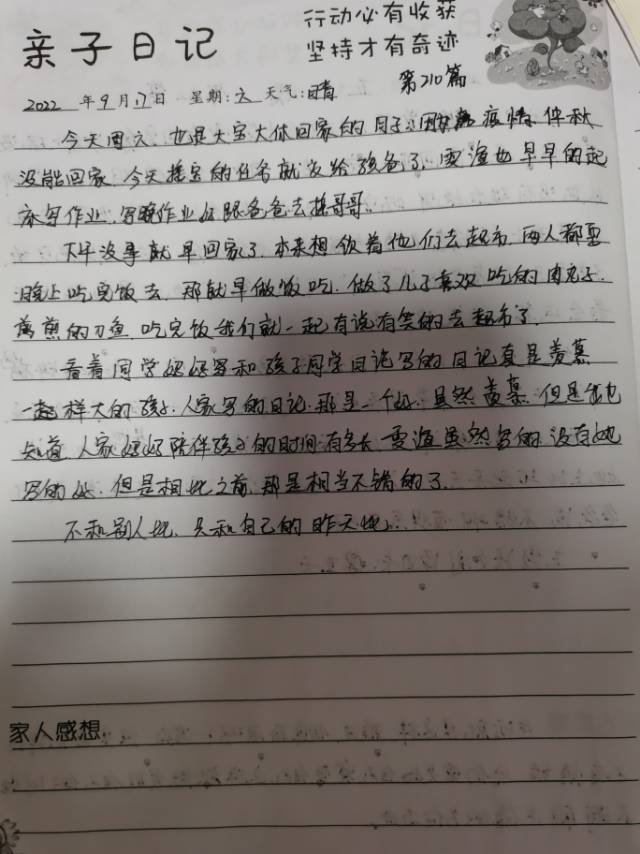 亲子日记
行动必有收获
坚持才有奇迹
第210篇
2022年9月17日 星期:六 天气:晴
今天周六,也是大宝大休回家的日子,因为疫情,中秋
没能回家,今天接宝的任务就交给孩爸了,雯渲也早早的起
床写作业,写完作业好跟爸爸去接哥哥。
下午没事就早回家了,本来想领着他们去超市,两人都要
晚上吃完饭去,那就早做饭吃,做了儿子喜欢吃的肉丸子,
煎煎的刀鱼,吃完饭我们就一起有说有笑的去超市了。
看着同学妈妈写和孩子同学日记写的日记真是羡慕
一起样大的孩子,人家写的日记,那是一个好,虽然羡慕,但是我也
知道人家妈妈陪伴孩子的时间有多长,雯渲虽然写的没有她
写的好,但是相比之前,那是相当不错的了。
不和别人比,只和自己的昨天比。
家人感想